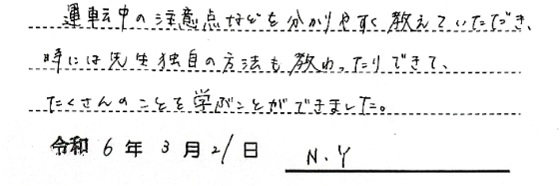 運転中の注意点などを分かりやすく教えていただき、
時には先生独自の方法も教わったりできて、
たくさんのことを学ぶことができました。
令和 6 年 3 月 21 日 N.Y